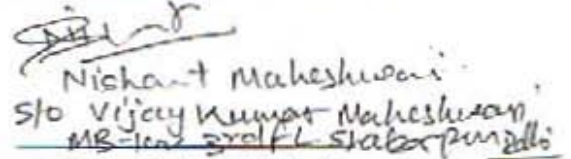 Nishant Maheshwari
S/o Vijay Kumar Maheshwari,
3rd FL Shakarpur Delhi